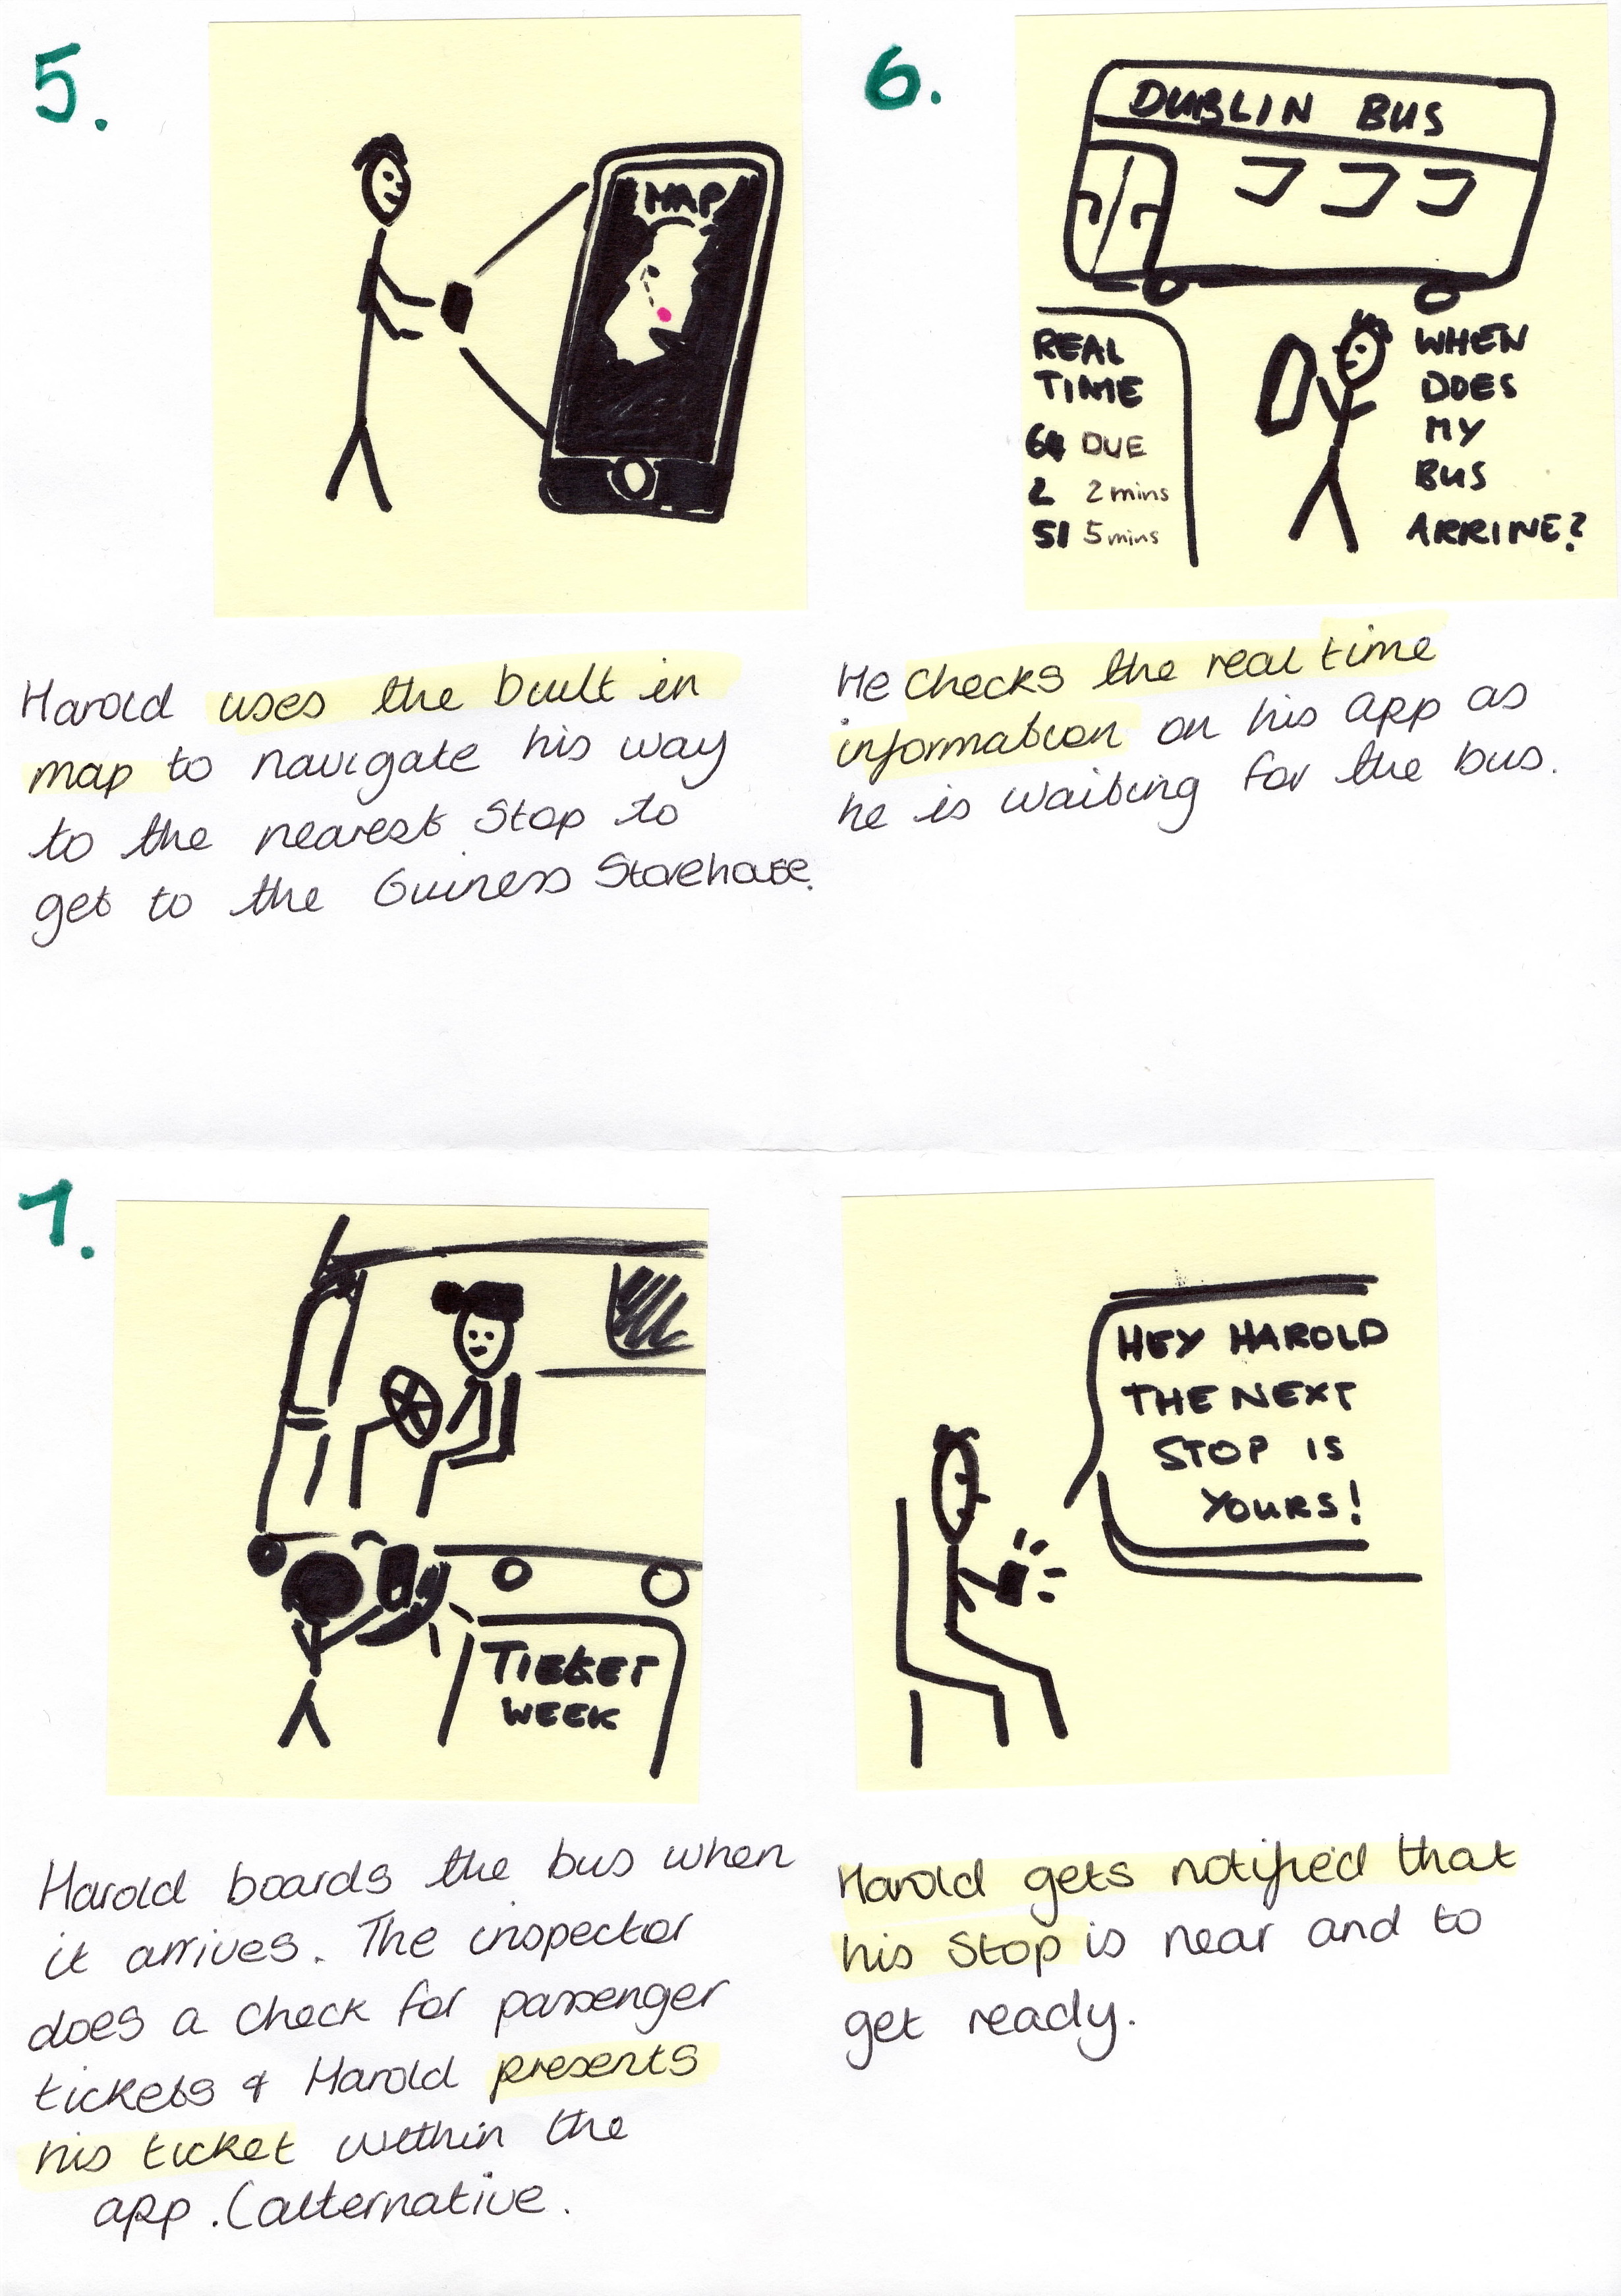 5.
MAP
Harold uses the built in
map to navigate his way
to the nearest Stop to
get to the Guiness Storehouse.
6.
DUBLIN BUS
REAL
TIME
DUE
2 2 mins
51 5 mins
WHEN
DOES
MY
BUS
ARRIVE?
He checks the real time
information on his app as
he is waiting for the bus.
7.
TICKET
WEEK
Harold boards the bus when
it arrives. The inspector
does a check for passenger
tickets & Harold presents
his ticket within the
app. (alternative.
HEY HAROLD
THE NEXT
STOP IS
YOURS!
Harold gets notified that
his Stop is near and to
get ready.